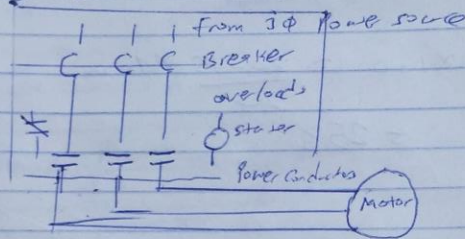 From 3Φ Power source
Breaker
overloads
Power Conductos
Motor